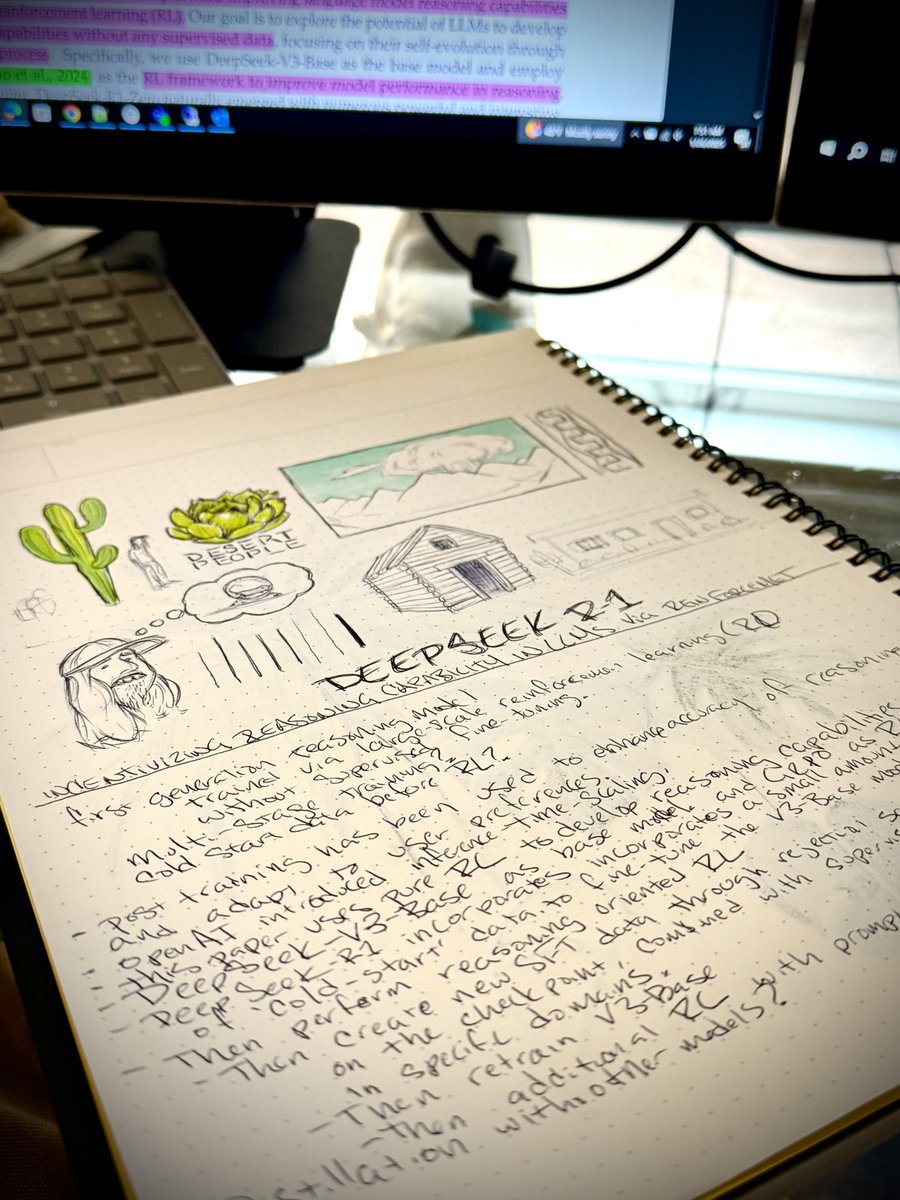 reinforcement learning (RL). Our goal is to explore the potential of LLMs to develop
capabilities without any supervised data, focusing on their self-evolution through
process. Specifically, we use DeepSeek-V3-Base as the base model and employ
et al., 2024 as the RL framework to improve model performance in reasoning
DESERT
PEOPLE
DEEPSEEK R-1
INCENTIVIZING REASONING CAPABILITY IN LLMS VIA REINFORCEMENT
first generation reasoning model
trained via large scale reinforcement learning (RL)
without supervised fine tuning.
Multi-stage training?
Cold start data before RL?
- Post training has been used to enhance accuracy of reasoning
and adapt to user preferences.
- OpenAI introduced inference-time scaling.
- This paper uses pure RL to develop reasoning capabilities
- DeepSeek-V3-Base as base model and GRPO as
- DeepSeek-R1 incorporates a small amount
of "cold-start" data to fine-tune the V3-Base
- Then perform reasoning oriented RL
- Then create new SFT data through rejection
on the checkpoint, combined with
in specific domains.
- Then retrain V3-Base
- then additional RL with
Distillation with other models?